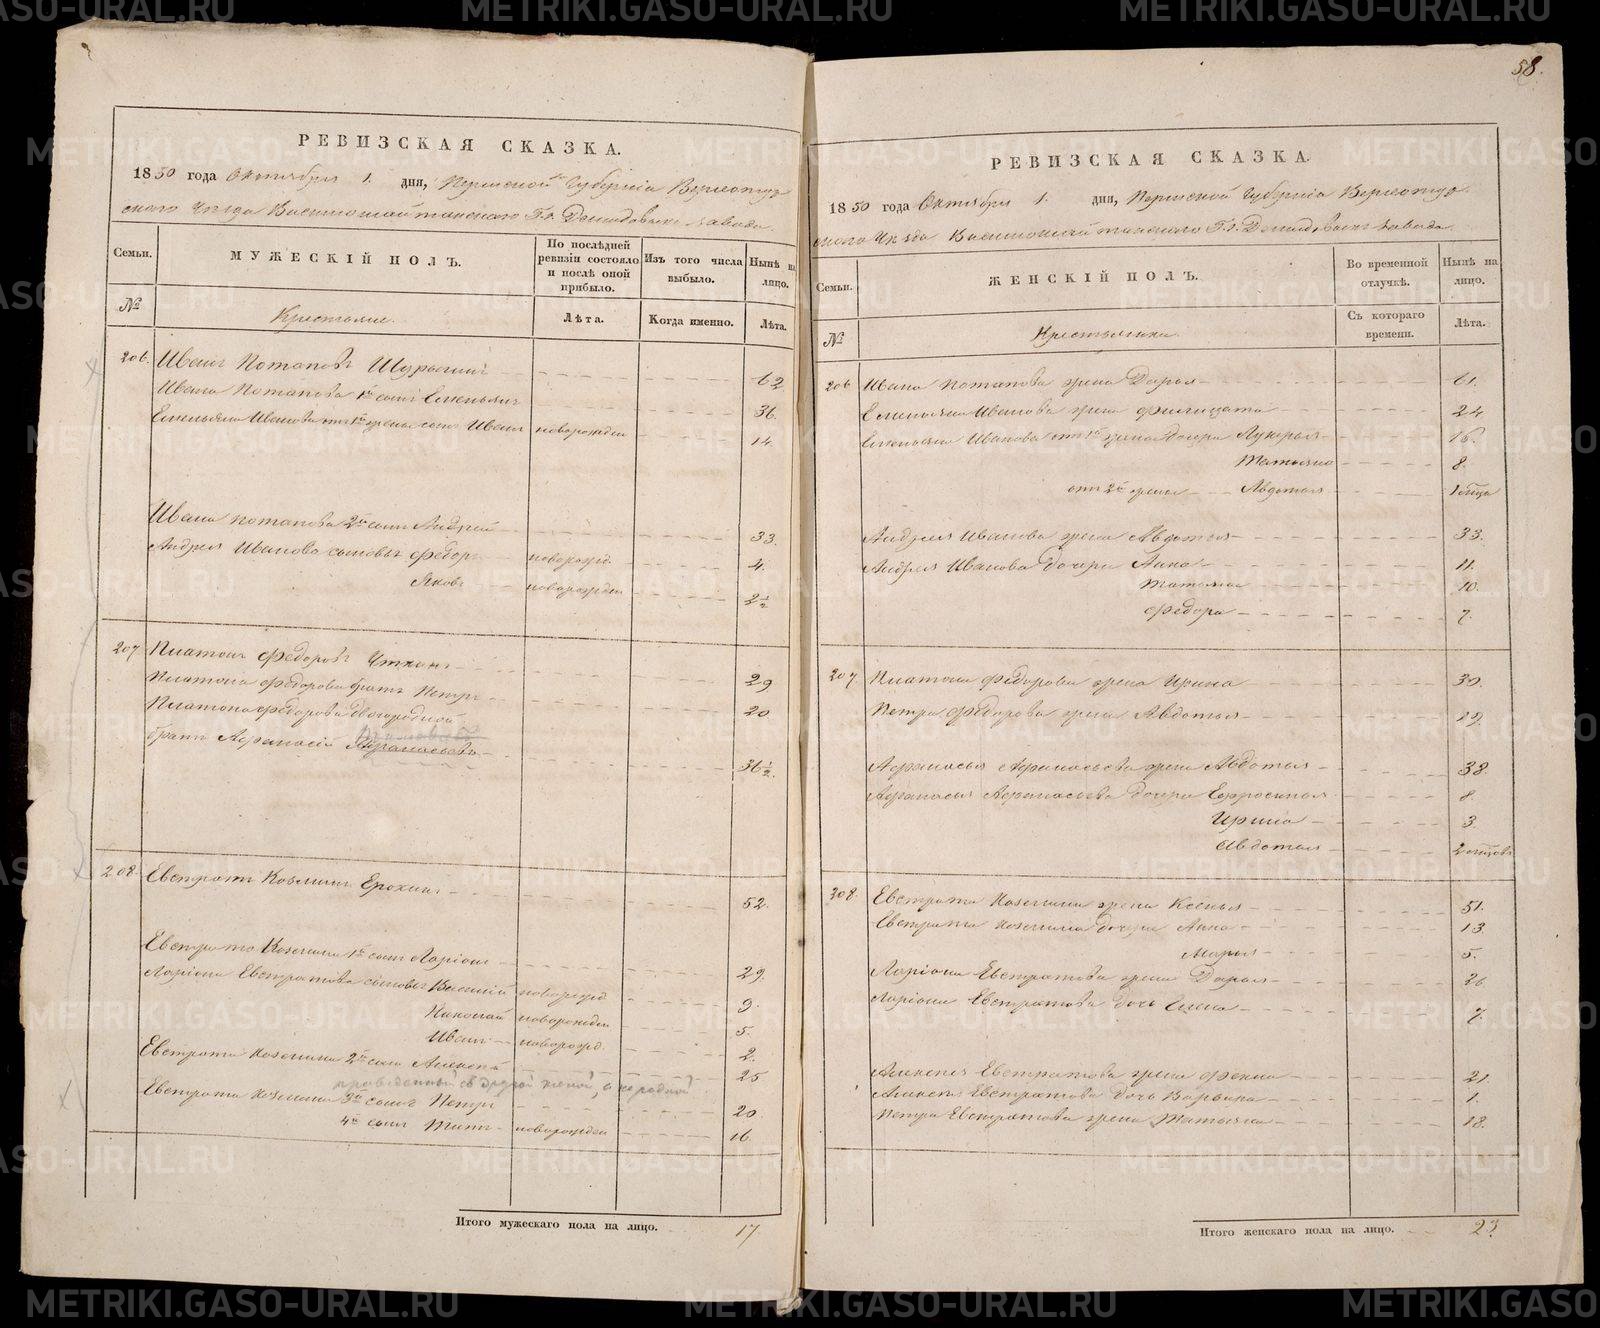 58.
РЕВИЗСКАЯ СКАЗКА.
1850 года Октября 1. дня, Пермской Губерніи Верхотур
скаго Уѣзда Висимошайтанскаго Г.г. Демидовыхъ завода.
Семьи.
МУЖЕСКІЙ ПОЛЪ.
По послѣдней ревизіи состояло и послѣ оной прибыло.
Изъ того числа выбыло.
Нынѣ на лицо.
№
Крестьяне.
Лѣта.
Когда именно.
Лѣта.
206. Иванъ Потаповъ 62
Ивана Потапова 1й сынъ Емельянъ 36.
Емельяна Иванова отъ 1й жены сынъ Иванъ новорожден 14.
Ивана Потапова 2й сынъ Андрей 33.
Андрея Иванова сыновья Федоръ новорожд. 4.
Яковъ новорожден 2½
207 Платонъ Федоровъ Уткинъ 29
Платона Федорова братъ Петръ 20
Платона Федорова двоюродной
братъ Афанасій Афанасьевъ 36½.
208. Евстратъ Козминъ Ерохинъ 52.
Евстрата Козмина 1й сынъ Ларіонъ 29.
Ларіона Евстратова сыновья Василій новорожд 9.
Николай новорожден 5.
Иванъ новорожд. 2.
Евстрата Козмина 2й сынъ Алексѣй 25
Евстрата Козмина 3й сынъ Петръ 20.
4й сынъ Титъ новорожден 16.
Итого мужескаго пола на лицо. 17.
РЕВИЗСКАЯ СКАЗКА.
1850 года Октября 1. дня, Пермской Губерніи Верхотур
скаго Уѣзда Висимошайтанскаго Г.г. Демидовыхъ завода.
Семьи.
ЖЕНСКІЙ ПОЛЪ.
Во временной отлучкѣ.
Нынѣ на лицо.
№
Крестьянки
Съ котораго времени.
Лѣта.
206 Ивана Потапова жена Дарья 61.
Емельяна Иванова жена Филицата 24
Емельяна Иванова отъ 1й жены дочери Лукерья 16.
Татьяна 8.
отъ 2й жены Авдотья 1
Андрея Иванова жена Авдотья 33.
Андрея Иванова дочери Анна 11.
Татьяна 10.
Федора 7.
207. Платона Федорова жена Ирина 30.
Петра Федорова жена Авдотья
Афанасья Афанасьева жена Авдотья 38.
Афанасья Афанасьева дочери Ефросинья 8.
Ирина 3.
Авдотья 2
208. Евстрата Козмина жена Ксенья 51.
Евстрата Козмина дочери Анна 13
Марья 5.
Ларіона Евстратова жена Дарья 26
Ларіона Евстратова дочь Анна 7.
Алексѣя Евстратова жена Фекла 21.
Алексѣя Евстратова дочь Варвара 1.
Петра Евстратова жена Татьяна 18.
Итого женскаго пола на лицо. 23.
METRIKI.GASO-URAL.RU